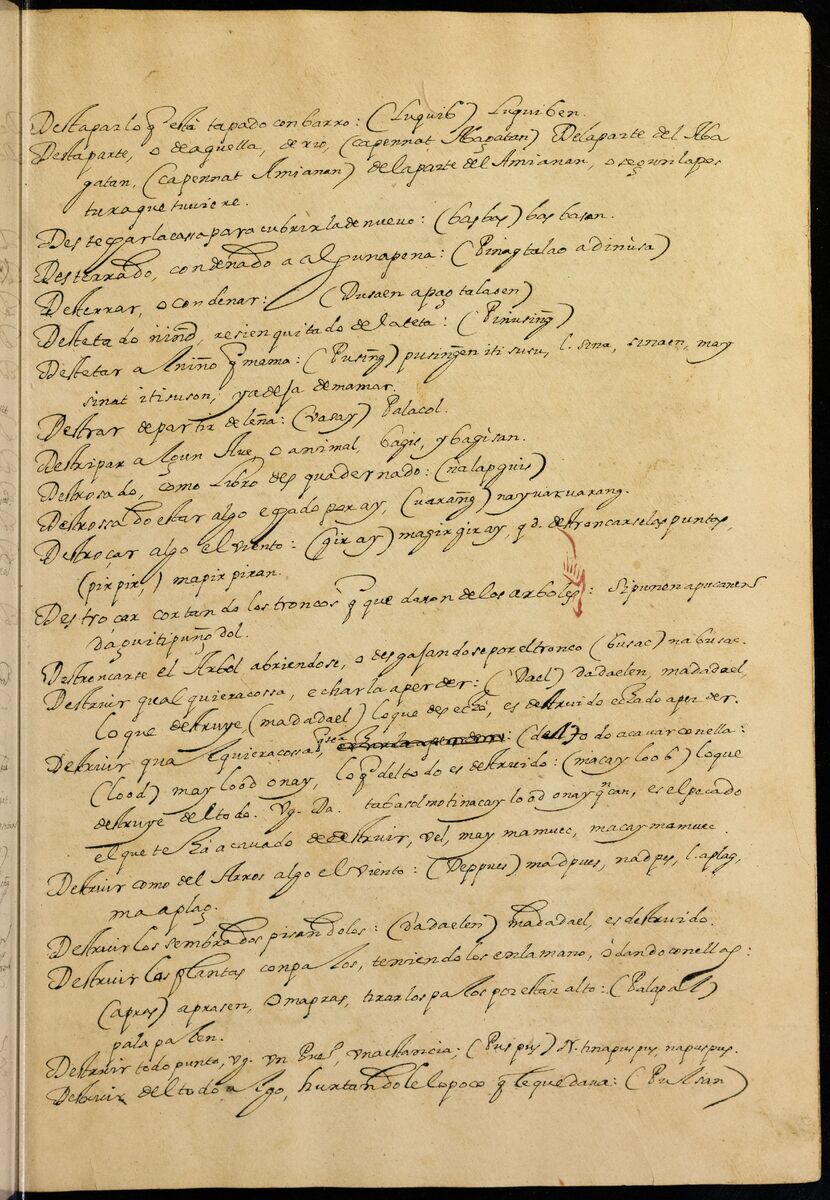 Destapar lo q̃ està tapado con barro: (Luquib) Luquiben.
Desta parte, o de aquella, de rio, (capennat Abagatan) Dela parte del Aba
gatan, (capennat Amianan) dela parte del Amianan, o segun la pos
tura que tuviere.
Destechar la cassa para cubrirla de nuevo: (basbas) basbasan.
Desterrado, condenado a alguna pena: (Pinagtalao a dinusa)
Desterrar, o condenar: (Dusaen a pagtalaoen)
Destetado niño, resien quitado de la teta: (Pinusing̃)
Destetar a l niño q̃ mama: (Pusing̃) pusing̃en iti susu, l. sina, sinaen, may
sinat iti suson, ya deja de mamar.
Destrar departir de leña: (vasay) Palacol.
Destripar a algun Ave, o animal, bagis, y bagisan.
Destrosado, como Libro desquadernado: (nalapguis)
Destrossado estar algo echado por ay, (uarang̃) nayvarvarang.
Destroçar algo el viento: (gir ay) magirgiray, q d. destroncarse las puntas,
(pirpir,) mapirpiran.
Destrocar cortando los troncos q̃ que daron de los arboles: Sipunen apucanen
dagui ti pung̃dol.
Destroncarse el Arbol abriendose, o desgajandose por el tronco (busac) nabusac.
Destruir qual quiera cossa, echarla a perder: (Dael) dadaelen, madadael,
lo que destruye, (madadael) lo que desechó, es destruido echado a perder.
Detruir qua lquiera cossa : (del todo acavar con ella:
(lood) may lood onay, lo q̃ del todo es destruido: (macay loob) lo que
destruye del todo. Vg. Da tabasolmo tinacay lood onay can, es el pecado
el que te ha acavado de destruir, vel, may mamuec, macay mamuec.
Detruir como del Arros algo el viento: (Deppues) madpues, nadpes, l. aplag,
ma aplag.
Destruir los sembrados pisandolos: (dadaelen) madadael, es destruido.
Destruir las plantas con palos, teniendolos en la mano, ó dando con ellas:
(apras) aprasen, o mapras, tirar los palos por estar alto: (Palapal)
pala palen.
Destruir todo punto, vg. vn Pueº, vna estancia; (Puspus) N. tinapuspus, napuspus.
Destruir del todo a lgo, hurtandole lo poco q̃ le quedava: (Pulsan)